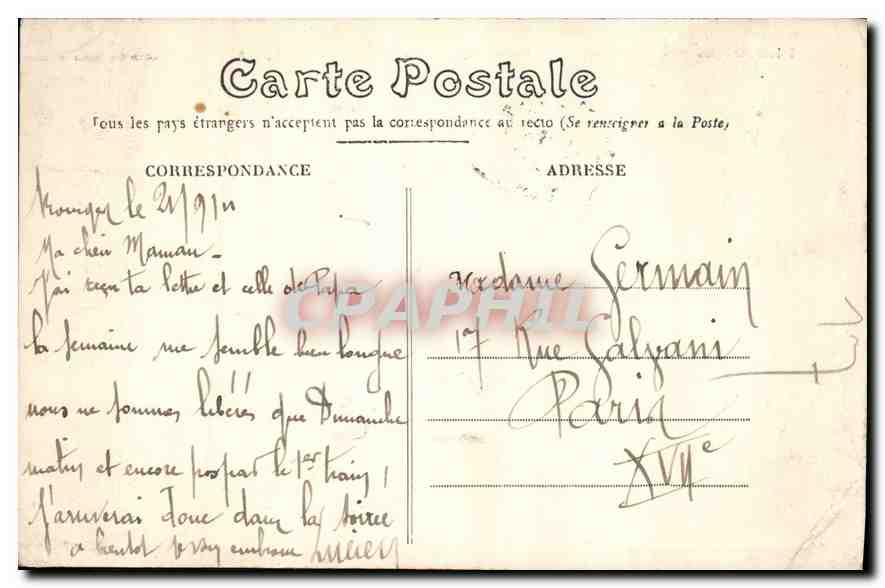 Carte Postale
Tous les pays étrangers n'acceptent pas la correspondance au recto (Se renseigner a la Poste)
CORRESPONDANCE
le 21/9/11
Ma chère Maman -
J'ai reçu ta lettre et celle de Papa
la semaine me semble bien longue
!!
nous ne sommes libérés que Dimanche
matin et encore pas par le 1er train,
J'arriverai donc dans la soirée
a bientot je vous embrasse Lucien
ADRESSE
Madame Germain
17 Rue Galvani
Paris
XVIIe
CPAPHIL